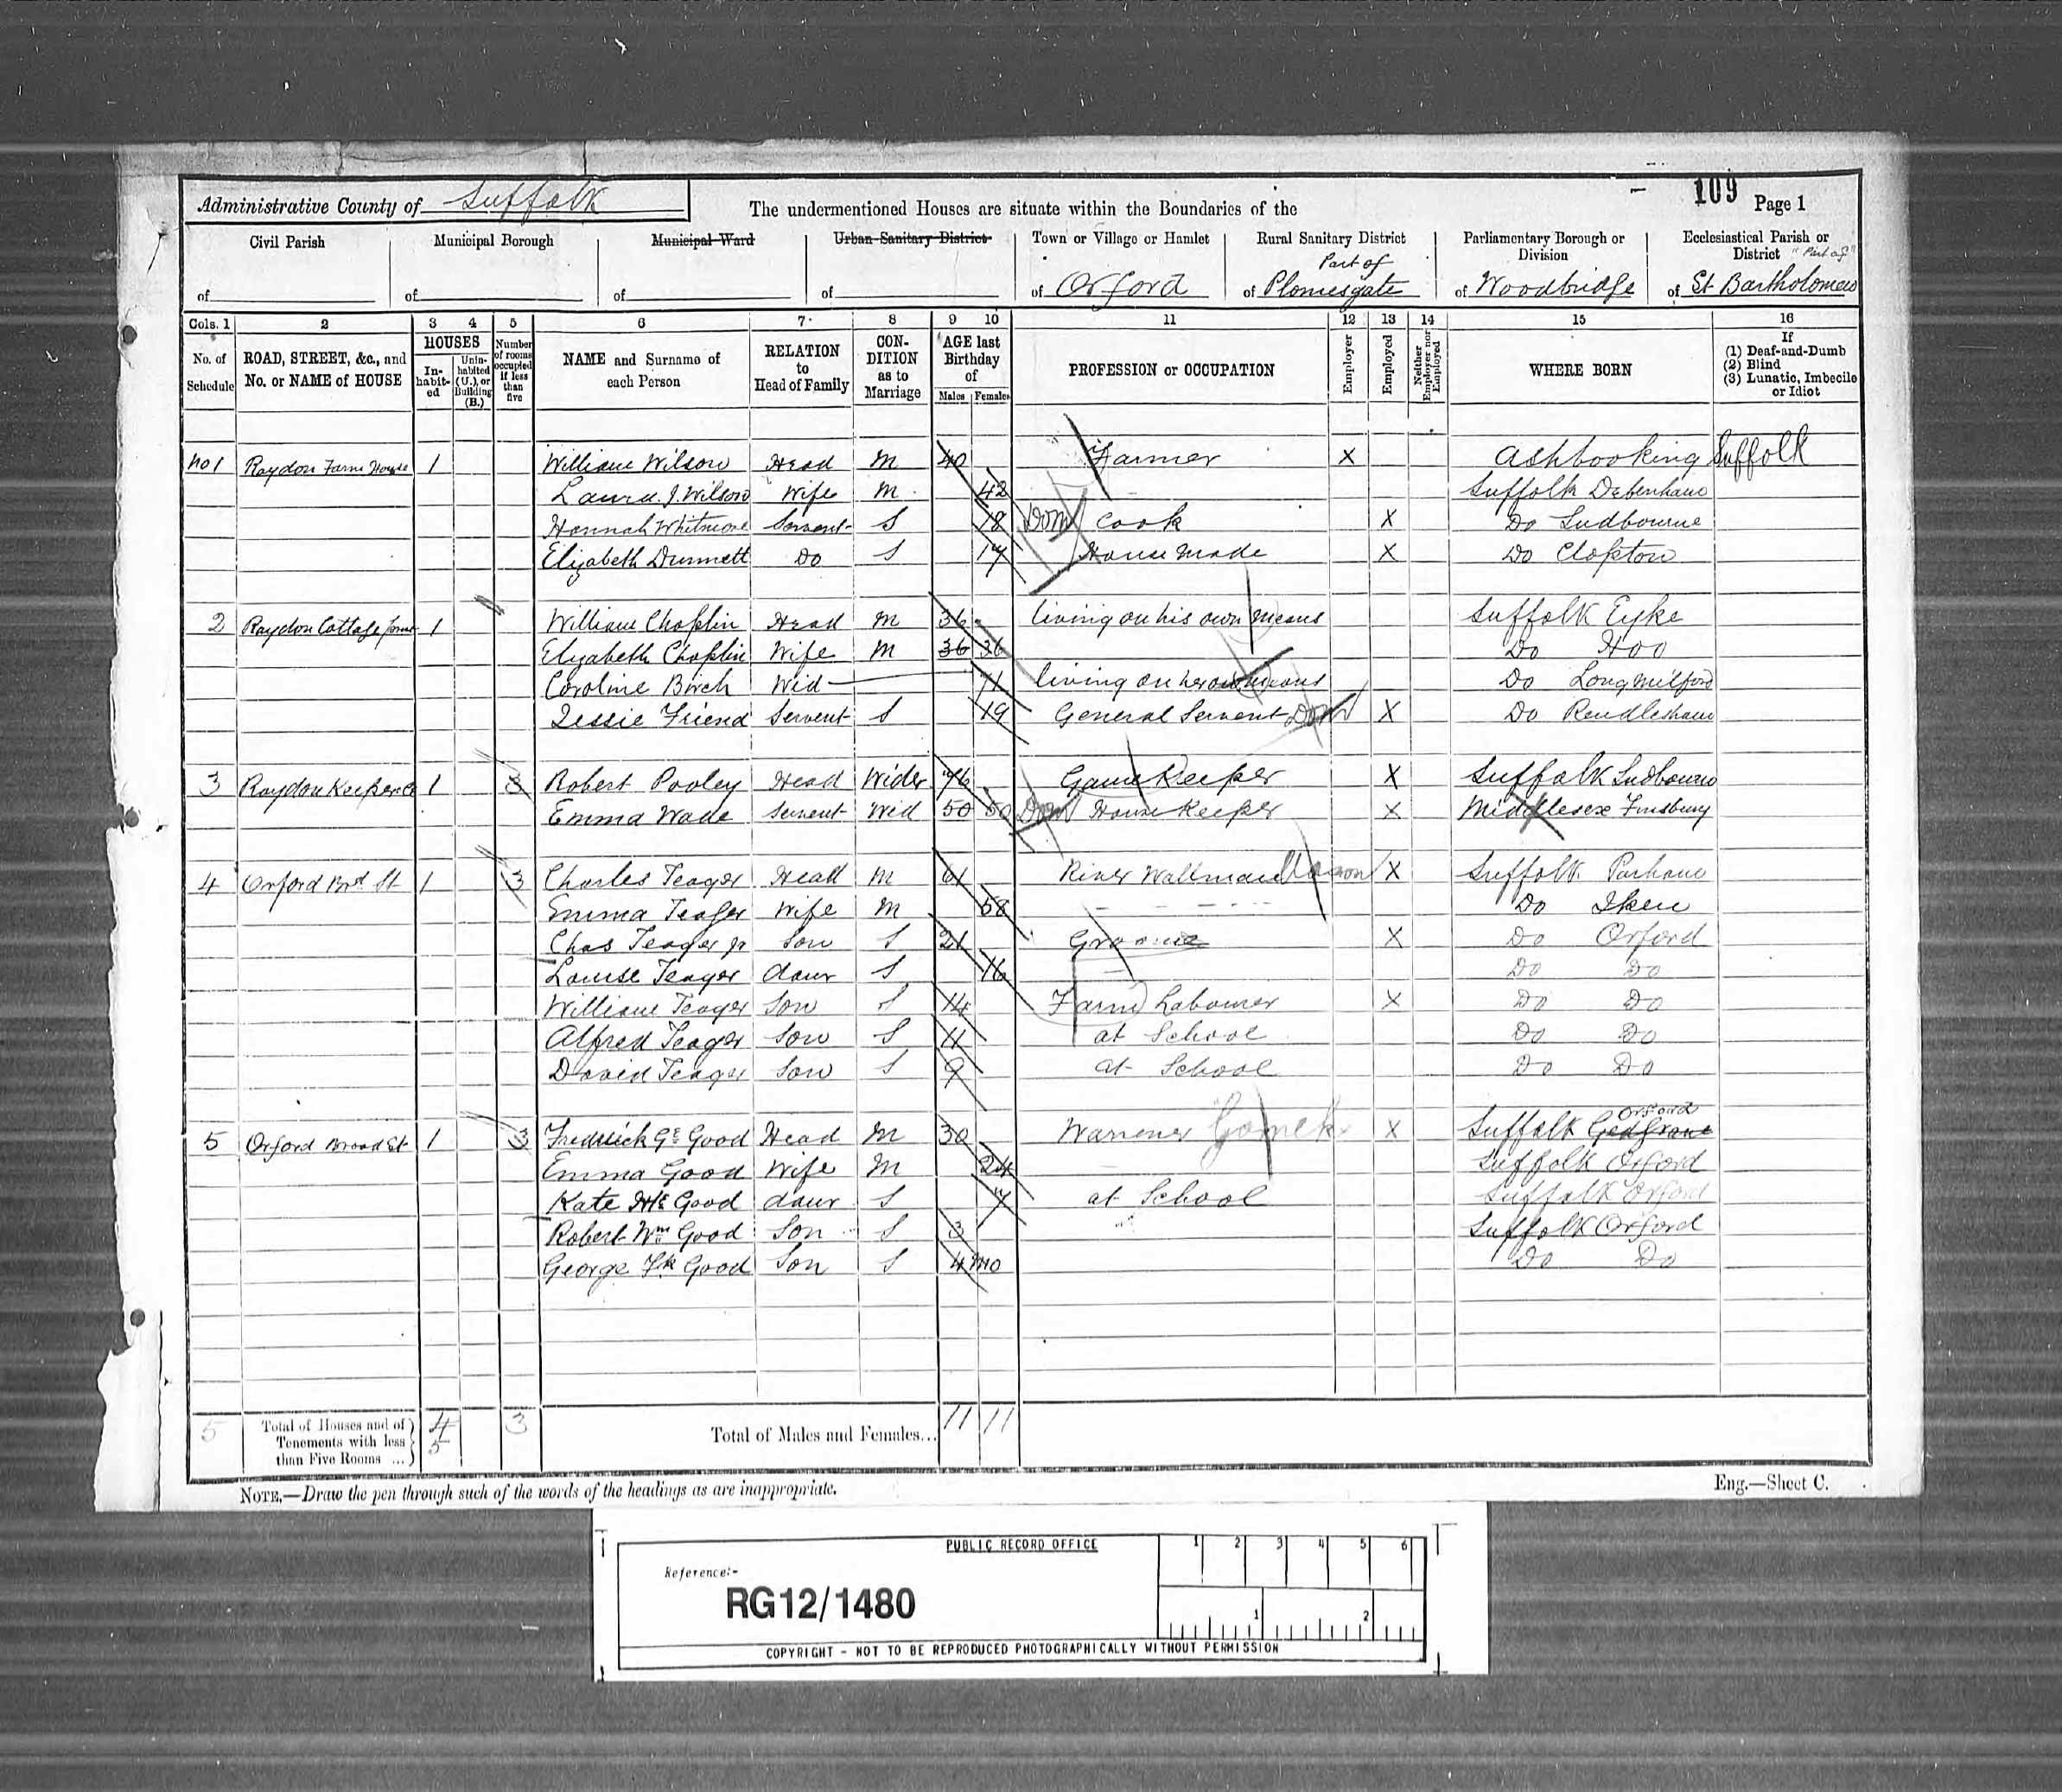 109 Page 1
Administrative County of Suffolk The undermentioned Houses are situate within the Boundaries of the
Civil Parish of Municipal Borough of Municipal Ward of Urban Sanitary District of Town or Village or Hamlet of Orford Rural Sanitary District Part of of Plomesgate Parliamentary Borough or Division of Woodbridge Ecclesiastical Parish or District "Part of" of St Bartholomew
Cols. 1 2 3 4 5 6 7 8 9 10 11 12 13 14 15 16
No. of Schedule ROAD, STREET, &c., and No. or NAME of HOUSE HOUSES Inhabited Uninhabited (U.), or Building (B.) Number of rooms occupied if less than five NAME and Surname of each Person RELATION to Head of Family CONDITION as to Marriage AGE last Birthday of Males Females PROFESSION or OCCUPATION Employer Employed Neither Employer nor Employed WHERE BORN If (1) Deaf-and-Dumb (2) Blind (3) Lunatic, Imbecile or Idiot
No 1 Raydon Farm House 1 William Wilson Head M 40 Farmer X Ashbooking Suffolk
Laura J. Wilson Wife M 42 Suffolk Debenham
Hannah Whitmore Servent S 18 Dom Cook X Do Sudbourne
Elizabeth Dunnett Do S 17 House Made X Do Clopton
2 Raydon Cottage 1 William Choplin Head M 36 living on his own Means Suffolk Eyke
Elizabeth Choplin Wife M 36 36 Do Hoo
Caroline Birch Wid 71 living on her own Means Do Long Milford
Jessie Friend Servent S 19 General Servent Dom X Do Rendlesham
3 Raydon Keepers 1 3 Robert Pooley Head Wider 76 Game Keeper X Suffolk Sudbourn
Emma Wade Servent Wid 50 50 Dom House Keeper X Middlesex Finsbury
4 Orford Brd St 1 3 Charles Teager Head M 61 River Wallman X Suffolk Parham
Emma Teager Wife M 58 Do Iken
Chas Teager Jr Son S 21 Groome X Do Orford
Louise Teager daur S 16 Do Do
William Teager Son S 14 Farm Labourer X Do Do
Alfred Teager Son S 11 at School Do Do
David Teager Son S 9 at School Do Do
5 Orford Broad St 1 3 Fredrick Ge Good Head M 30 Warrener Gamek X Suffolk Gedgrave Orford
Emma Good Wife M 24 Suffolk Orford
Kate Good daur S 7 at School Suffolk Orford
Robert Wm Good Son S 3 Suffolk Orford
George Fk Good Son S 4 mo Do Do
5 Total of Houses and of Tenements with less than Five Rooms ... 4 5 3 Total of Males and Females... 11 11
NOTE.—Draw the pen through such of the words of the headings as are inappropriate. Eng.—Sheet C.
PUBLIC RECORD OFFICE 1 2 3 4 5 6
Reference:-
RG12/1480 1 2
COPYRIGHT - NOT TO BE REPRODUCED PHOTOGRAPHICALLY WITHOUT PERMISSION